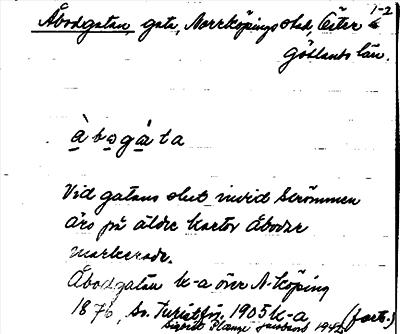 1-2
Åbodgatan, gata, Norrköpings stad, Öster-
götlands län.
àbogáta
Vid gatans slut invid Strömmen
äro på äldre kartor Åbodar
markerade.
Åbodgatan k-a över N-köping
1876, Sv. Turistför. 1905 k-a (forts.)
1942